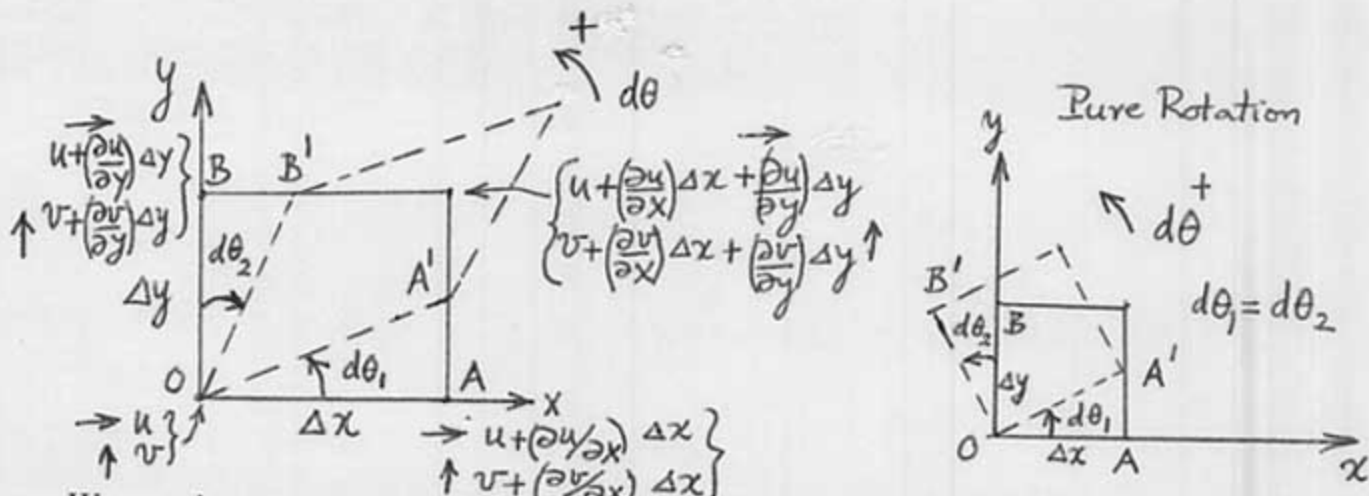 +
dθ
y
u+(∂u/∂y)Δy
v+(∂v/∂y)Δy
B
B'
u+(∂u/∂x)Δx+(∂u/∂y)Δy
v+(∂v/∂x)Δx+(∂v/∂y)Δy
dθ₂
Δy
A'
dθ₁
O
A
x
Δx
u
v
u+(∂u/∂x) Δx
v+(∂v/∂x) Δx
Pure Rotation
y
+
dθ
B'
dθ₁=dθ₂
dθ₂
B
A'
Δy
dθ₁
O
Δx
A
x